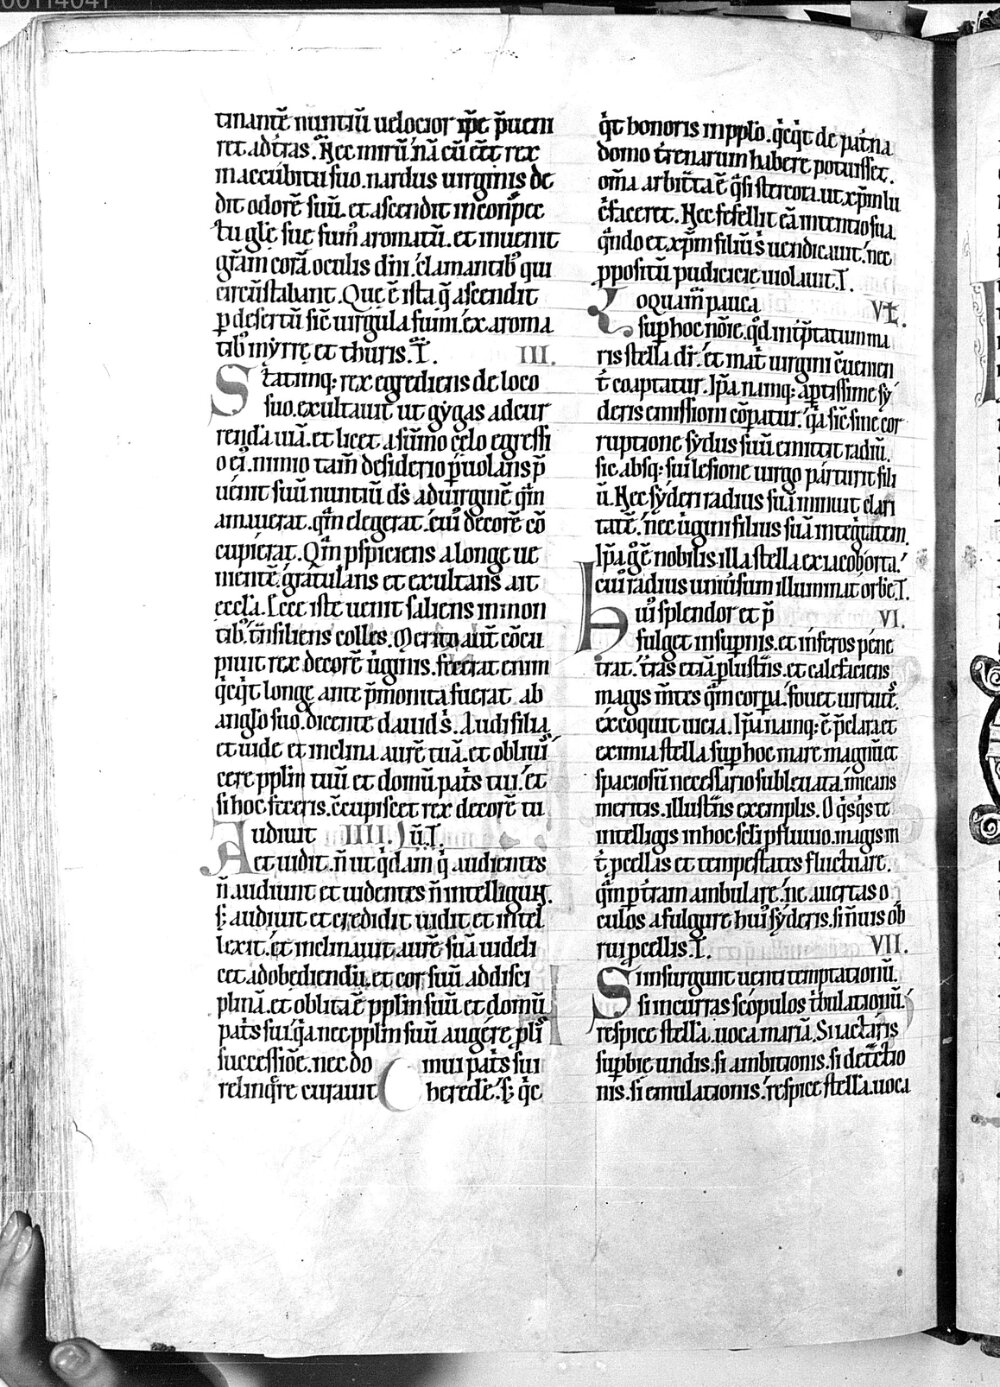 tinantē nuntiū uelocior ipē p̄ueni
ret ad t̄ras. Nec mirū. nā cū eēt rex
in accubitu suo. nardus uirginis de
dit odorē suū. et ascendit in conspec
tu gl̄e sue fum⁹ aromatū. et inuenit
grām corā oculis dn̄i. clamantib⁹ qui
circūstabant. Que ē ista q̄ ascendit
p desertū sic̄ uirgula fumi. ex aroma
tib⁹ myrre et thuris. T̄.
III.
Statimq; rex egrediens de loco
suo. exultauit ut gygas ad cur
rendā uiā. et licet a sūmo celo egressi
o ei⁹. nimio tam̄ desiderio p̄uolans p̄
uenit suū nuntiū d̄s ad uirginē q̄m
amauerat. q̄m elegerat. cui⁹ decorē cō
cupierat. Q̄m p̄spiciens a longe ue
nientē. gratulans et exultans ait
eccl̄a. Ecce iste uenit saliens in mon
tib⁹. t̄nsiliens colles. Merito aut̄ cōcu
piuit rex decorē ūginis. fecerat enim
q̇cq̇t longe ante p̄monita fuerat ab
anglo suo. dicente dauid ṡ. Audi filia
et uide et inclina aurē tuā. et obliuis
cere pplm̄ tuū et domū pat̄s tui. et
si hoc feceris. ccupiscet rex decorē tu
Audiuit IIII. ū. T̄.
et uidit. n̄ ut q̇dam q̇ audientes
n̄ audiunt et uidentes n̄ intelligunt.
s; audiuit et credidit. uidit et intel
lexit. et inclinauit aurē suā uideli
cet ad obediendū. et cor suū ad disci
plinā. et oblita ē pplm̄ suū et domū
pat̄s sui. q̇a nec pplm̄ suū augere plis
successiōe. nec do mui pat̄s sui
relinq̄re curauit herede. s; q̇c
q̇t honoris in pplo. q̇cq̇t de pat̄na
domo t̄renarum habere potuisset.
om̄a arbit̄ta ē q̄si stercora. ut xp̄m lu
c̄faceret. Nec fefellit eā intentio sua.
q̄ndo et xp̄m filiū ṡ uendicauit. nec
ppositū pudicicie uiolauit. T̄.
Loquam̄ pauca V.
sup hoc nōie. qd̄ int̄p̄tatum ma
ris stella dr̄. et mat̄ uirgini c̄uenien
t̄ coaptatur. Ip̄a namq; aptissime sy
deris emissioni cōparatur. q̇a sic̄ sine cor
ruptione sydus suū emittit radiū.
sic absq; sui lesione uirgo parturit fili
ū. Nec syderi radius suā minuit clari
tatē. nec ūgini filius suā inteġtatem.
Ip̄a g° ē nobilis illa stella ex iacob orta.
cui⁹ radius uniūsum illuminat orbē. T̄.
Hui⁹ splendor et p̄ VI.
fulget in sup̄nis. et inferos pene
trat. t̄ras etiā plust̄ns. et calefaciens
magis m̄tes q̄m corpa. fouet uirtutes.
excoquit uicia. Ip̄a inq̄ ē p̄clara et
eximia stella sup hoc mare magnū et
spaciosū necessario subleuata. micans
meritis. illust̄ns exemplis. O q̇sq̇s te
intelligis in hoc sc̄li pfluuio. magis in
t̄ pcellas et tempestates fluctuare.
q̄m p t̄ram ambulare. ne auertas o
culos a fulgure hui⁹ syderis. si n̄ uis ob
rui pcellis. T̄. VII.
Si insurgunt uenti temptationū.
si incurras scopulos t̄bulationū.
respice stellā. uoca mariā. Si iactaris
supbie undis. si ambitionis. si det̄ctio
nis. si emulationis. respice stellā. uoca